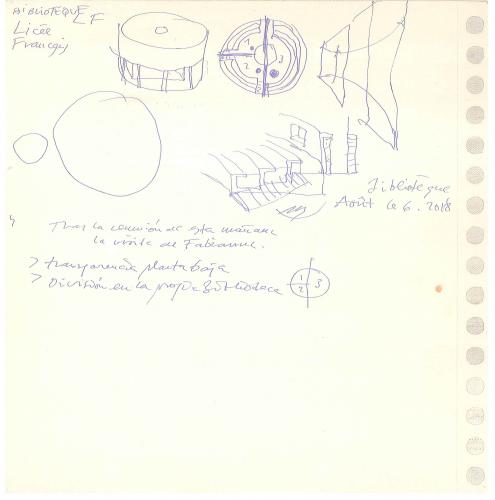 BIBLIOTEQUE LF
Licée
Françis
1
2
3
Bibliotèque
Août le 6 . 2018
Tras la reunión de esta mañana
la visita de Fabianne.
> transparencia planta baja
> División en la propia Biblioteca
1
2
3